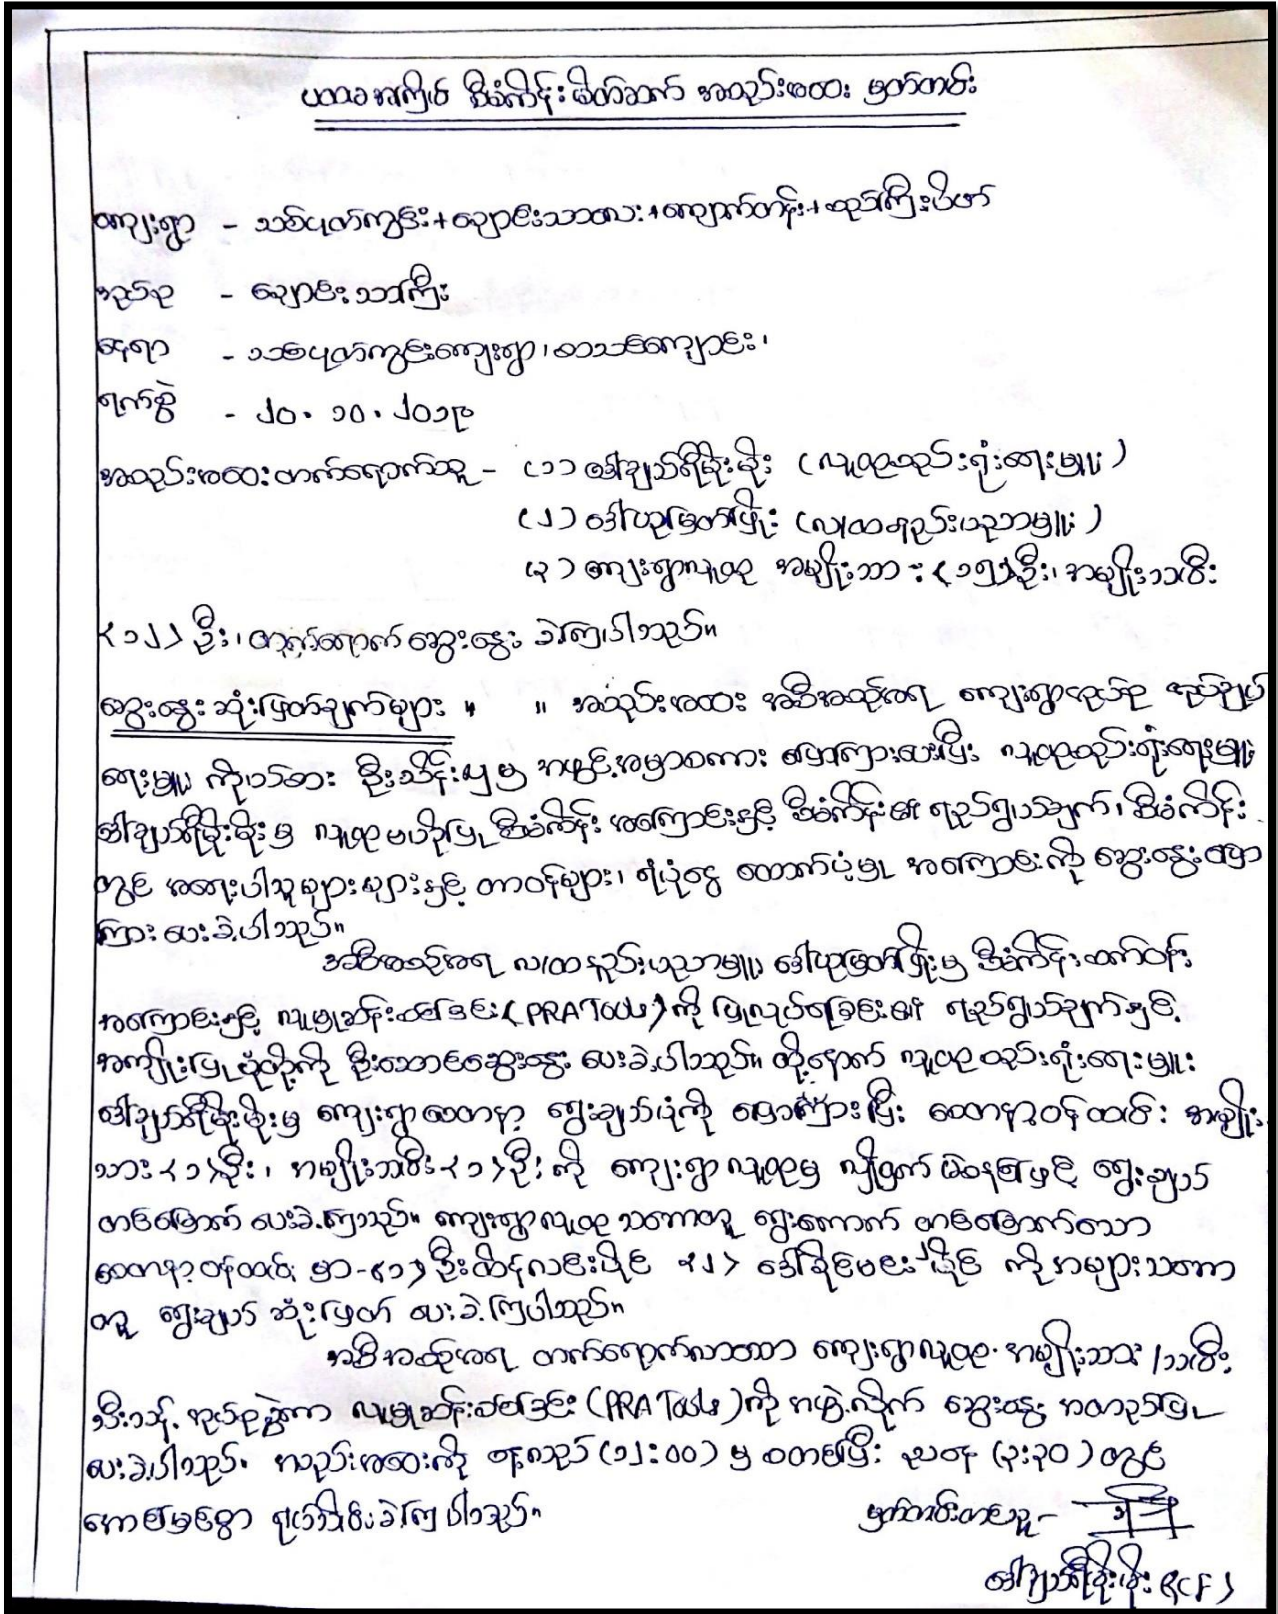 ပထမအကြိမ် စီမံကိန်းမိတ်ဆက် အစည်းအဝေး မှတ်တမ်း
ကျေးရွာ - သစ်ပုတ်ကွင်း+ချောင်းသာလေး+ကျောက်တန်း+ထုပ်ကြီးပိတ်
အုပ်စု - ချောင်းသာကြီး
နေရာ - သစ်ပုတ်ကွင်းကျေးရွာ၊ စာသင်ကျောင်း၊
ရက်စွဲ - ၂၀.၁၀.၂၀၁၉
အစည်းအဝေးတက်ရောက်သူ - (၁) ဒေါ်ချယ်ရီမိုးမိုး (လူထုစည်းရုံးရေးမှူး)
(၂) ဒေါ်ယုမြတ်ဖြိုး (လ/ထ နည်းပညာမှူး)
(၃) ကျေးရွာလူထု အမျိုးသား = <၁၅>ဦး၊ အမျိုးသမီး
<၁၂> ဦး၊ တက်ရောက်ဆွေးနွေး ခဲ့ကြပါသည်။
ဆွေးနွေးဆုံးဖြတ်ချက်များ ။ ။ အစည်းအဝေး အစီအစဉ်အရ ကျေးရွာအုပ်စု အုပ်ချုပ်
ရေးမှူး ကိုယ်စား ဦးသိန်း မှ အဖွင့်အမှာစကား ပြောကြားပေးပြီး လူထုစည်းရုံးရေးမှူး
ဒေါ်ချယ်ရီမိုးမိုးမှ လူထုဗဟိုပြု စီမံကိန်း အကြောင်းနှင့် စီမံကိန်း၏ ရည်ရွယ်ချက်၊ စီမံကိန်း
တွင် အရေးပါသူများများနှင့် တာဝန်များ၊ ရံပုံငွေ ထောက်ပံ့မှု အကြောင်းကို ဆွေးနွေးပြော
ကြား ပေးခဲ့ပါသည်။
အစီအစဉ်အရ လ/ထ နည်းပညာမှူး ဒေါ်ယုမြတ်ဖြိုးမှ စီမံကိန်းစက်ဝန်း
အကြောင်းနှင့် လူမှုဆန်းစစ်ခြင်း(PRA Tools)ကို ပြုလုပ်ရခြင်း၏ ရည်ရွယ်ချက်နှင့်
အကျိုးပြုပုံတို့ကို ဦးဆောင်ဆွေးနွေး ပေးခဲ့ပါသည်။ ထို့နောက် လူထုစည်းရုံးရေးမှူး
ဒေါ်ချယ်ရီမိုးမိုးမှ ကျေးရွာစေတနာ့ ရွေးချယ်ပုံကို ပြောကြားပြီး စေတနာ့ဝန်ထမ်း အမျိုး
သား<၁>ဦး၊ အမျိုးသမီး<၁>ဦး ကို ကျေးရွာလူထုမှ လျှို့ဝှက်မဲစနစ်ဖြင့် ရွေးချယ်
တင်မြှောက် ပေးခဲ့ကြသည်။ ကျေးရွာလူထု သဘောတူ ရွေးကောက် တင်မြှောက်သော
စေတနာ့ဝန်ထမ်း မှာ-<၁> ဦးထိန်လင်းပိုင် <၂> ဒေါ်ခိုင်မင်း ကို အများသဘော
တူ ရွေးချယ် ဆုံးဖြတ် ပေးခဲ့ကြပါသည်။
အစီအစဉ်အရ တက်ရောက်လာသော ကျေးရွာလူထု အမျိုးသား/သမီး
သီးသန့် အုပ်စုခွဲကာ လူမှုဆန်းစစ်ခြင်း(PRA Tools)ကို အဖွဲ့လိုက် ဆွေးနွေး အတည်ပြု
ပေးခဲ့ပါသည်။ အစည်းအဝေးကို နေ့လည်(၁၂:၀၀)မှ စတင်ပြီး ညနေ (၃:၃၀)တွင်
အောင်မြင်စွာ ရုပ်သိမ်းခဲ့ကြပါသည်။ မှတ်တမ်းတင်သူ-
ဒေါ်ချယ်ရီမိုးမိုး <CF>